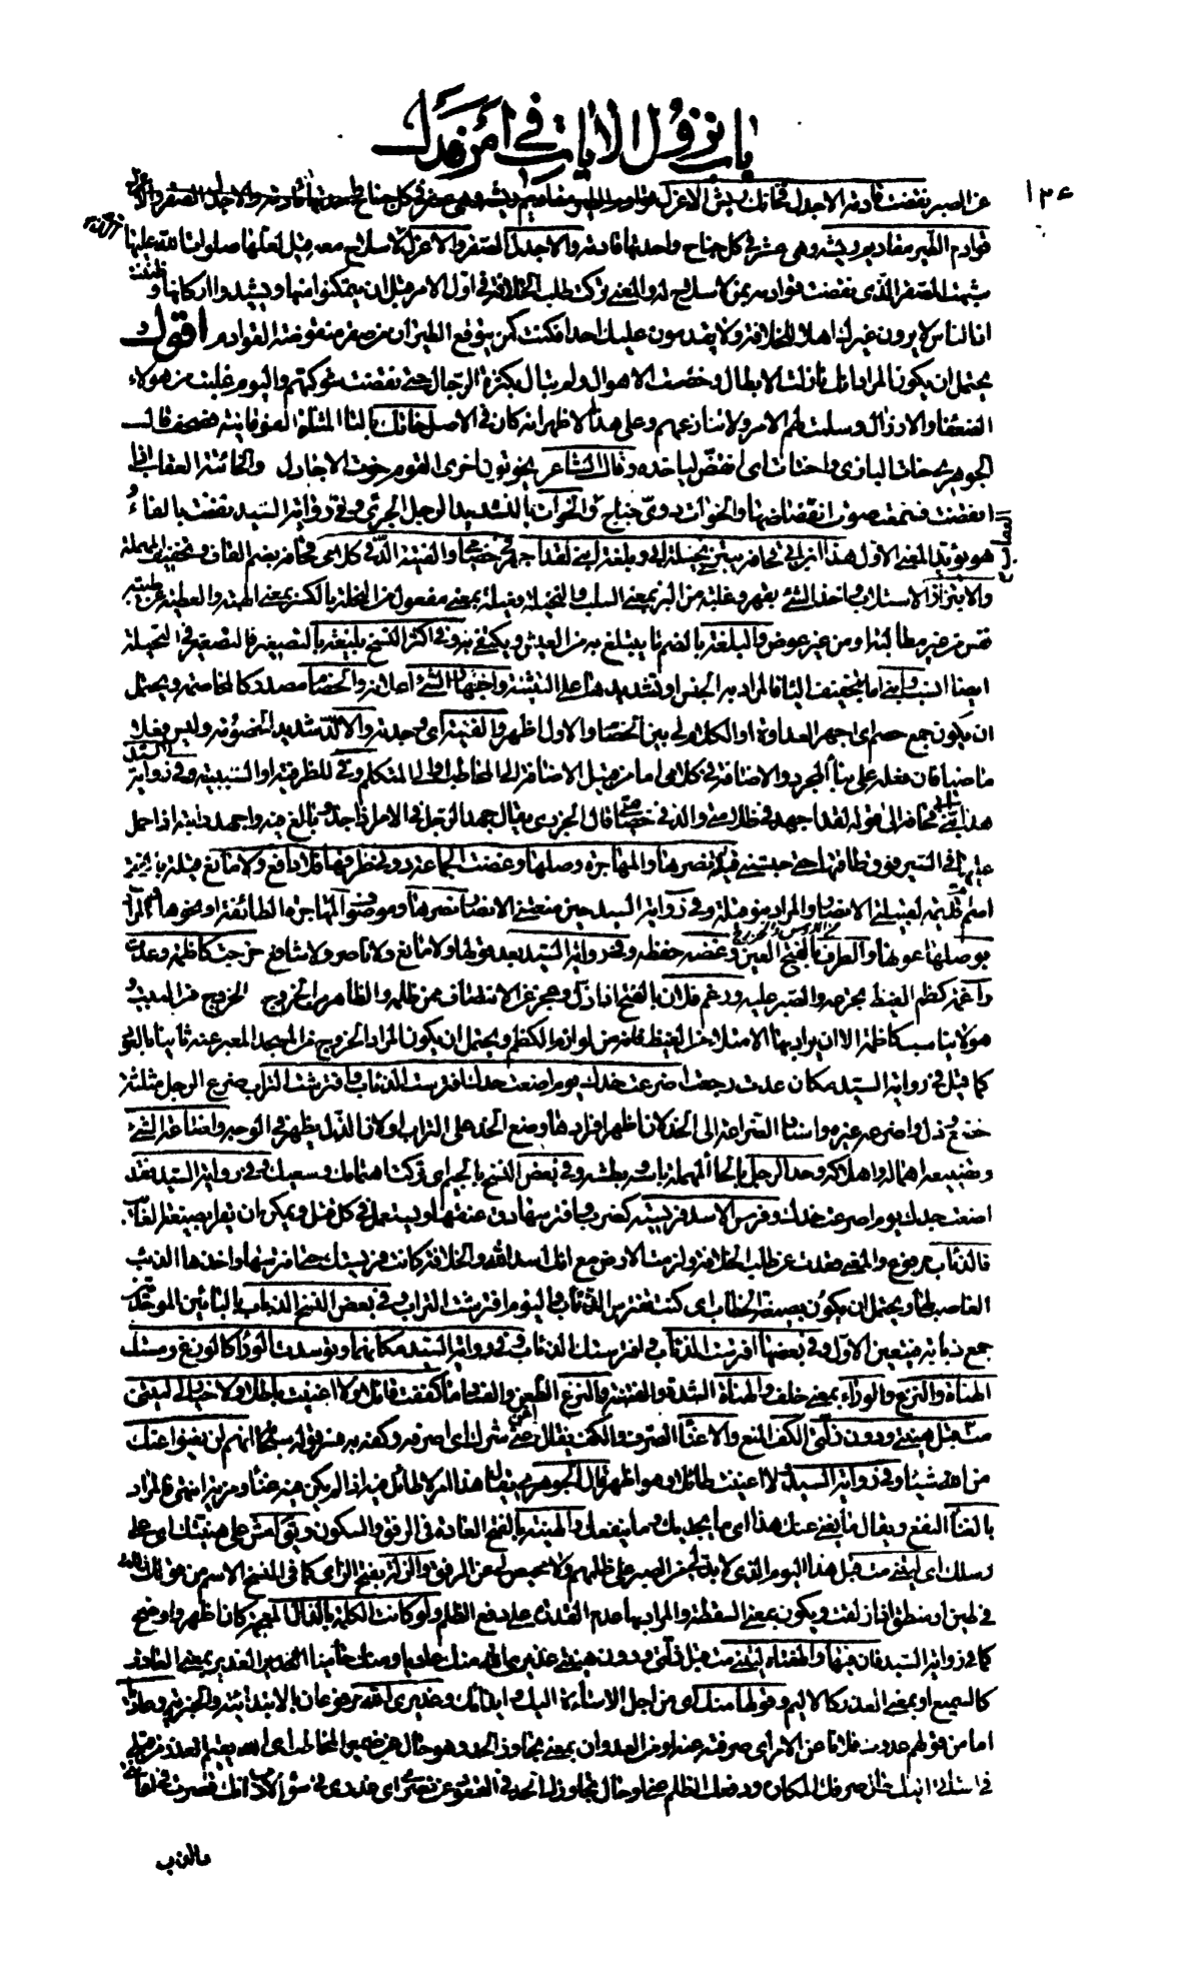 باب نزول الآيات في أمر فدك
١٣٤
عن الصبر نقضت قادمة الاجدل فخانك ريش الاعزل قوادم الطير مقاديم ريشه وهي عشر في كل جناح واحدتها قادمة والاجدل الصقر والاعزل
قوادم الطير مقاديم ريشه وهي عشر في كل جناح واحدتها قادمة والاجدل الصقر والاعزل لا سلاح معه قيل لعلها صلوات الله عليها
شبهت الصقر الذي نقضت قوادمه بمن لا سلاح له والمعنى تركت طلب الخلافة في اول الامر قبل ان يتمكنوا منها ويشيدوا اركانها وظننت
ان الناس لا يرون غيرك اهلا للخلافة ولا يقدمون عليك احدا فكنت كمن يتوقع الطيران من صقر منقوضة القوادم اقول
يحتمل ان يكون المراد انك نازلت الابطال وخضت الاهوال ولم تبال بكثرة الرجال حتى نقضت شوكتهم واليوم غلبت من هؤلاء
الضعفاء والارذال وسلمت لهم الامر ولا تنازعهم وعلى هذا الاظهر انه كان في الاصل خاتك بالتاء المثناة الفوقانية فصحف قال
الجوهري خات البازي واختات اي انقض لياخذه وقال الشاعر يخوتون اخرى القوم خوت الاجادل والخائتة العقاب اذا
انقضت فسمعت صوت انقضاضها والخوات دوي جناح العقاب والخوات بالتشديد الرجل الجري وفي رواية السيد نقضت بالفاء
هو يؤيد المعنى الاول هذا ابن ابي قحافة يبتزني نحيلة ابي وبليغة ابني لقد اجهر في خصامي والفيته الد في كلامي قحافة بضم القاف وتخفيف المهملة
والابتزاز الاستلاب واخذ الشيء بقهر وغلبة من البز بمعنى السلب والنحيلة فعيلة بمعنى مفعول من النحلة بالكسر بمعنى الهبة والعطية عن طيبة
نفس من غير مطالبة او من غير عوض والبلغة بالضم ما يتبلغ به من العيش ويكتفى به وفي اكثر النسخ بليغة بالتصغير فالتصغير في النحيلة
ايضا انسب وابني اما بتخفيف الياء فالمراد به الجنس او تشديدها على التثنية واجهار الشيء اعلانه والخصام مصدر كالمخاصمة ويحتمل
ان يكون جمع خصم اي اجهر العداوة او الكلام لي بين الخصام والاول اظهر والفيته اي وجدته والالد شديد الخصومة وليس فعلا
ماضيا فان فعله على بناء المجرد والاضافة في كلامي اما من قبيل الاضافة الى المخاطب او الى المتكلم وفي للظرفية او السببية وفي رواية السيد
هذا بني ابي قحافة الى قولها لقد اجهد في ظلامتي والد في خصامي قال الجزري يقال جهد الرجل في الامر اذا جد وبالغ فيه واجهد دابته اذا حمل
عليها في السير فوق طاقتها حتى حبستني قيلة نصرها والمهاجرة وصلها وغضت الجماعة دوني طرفها فلا دافع ولا مانع قيلة بالفتح
اسم ام قديمة لقبيلتي الانصار والمراد بنو قيلة وفي رواية السيد حين منعتني الانصار نصرها وموصوف المهاجرة الطائفة او نحوها والمراد
بوصلها عونها والطرف بالفتح العين وغضه خفضه وفي رواية السيد بعد قولها ولا مانع ولا ناصر ولا شافع خرجت كاظمة وعدت
راغمة كظم الغيظ تجرعه والصبر عليه ورغم فلان بالفتح اذا ذل وعجز عن الانتصاف ممن ظلمه والظاهر من الخروج الخروج من البيت و
هو لا يناسب كاظمة الا ان يراد بها الامتلاء من الغيظ فانه من لوازم الكظم ويحتمل ان يكون المراد الخروج من المسجد المعبر عنه ثانيا بالعود
كما قيل في رواية السيد مكان عدت رجعت اضرعت خدك يوم اضعت حدك افترست الذئاب وافترشت التراب ضرع الرجل مثلثة
خضع وذل واضرعه غيره واسناد الضراعة الى الخد لان اظهر افرادها وضع الخد على التراب او لان الذل يظهر في الوجه واضاعة الشيء
وتضييعه اهماله واهلاكه وحد الرجل بالحاء المهملة بأسه وبطشه وفي بعض النسخ بالجيم اي تركت اهتمامك وسعيك وفي رواية السيد فقد
اضعت جدك يوم اصرعت خدك وفرس الاسد فريسته كضرب وافترسها دق عنقها ويستعمل في كل قتل ويمكن ان يقرا بصيغة الغائب
فالذئاب مرفوع والمعنى قعدت عن طلب الخلافة ولزمت الارض مع انك اسد الله والخلافة كانت فريستك حتى افترسها واخذها الذئب
الغاصب لها ويحتمل ان يكون بصيغة الخطاب اي كنت تفترس الذئاب واليوم افترشت التراب وفي بعض النسخ الذباب بالباءين الموحدتين
جمع ذبابة فيتعين الاول وفي بعضها افترست الذئاب وافترستك الذئاب وفي رواية السيد مكانهما وتوسدت الوراء كالوزغ ومستك
الهناة والنزغ والوراء بمعنى خلف والهناة الشدة والفتنة والنزغ الطعن والفساد ما كففت قائلا ولا اغنيت باطلا ولا خيار لي ليتني
مت قبل هينتي ودون زلتي الكف المنع والاغناء الصرف والكف يقال اغن عني شرك اي اصرفه وكفه به فسر قوله سبحانه انهم لن يغنوا عنك
من الله شيئا وفي رواية السيد ولا اغنيت طائلا وهو اظهر قال الجوهري يقال هذا امر لا طائل فيه اذا لم يكن فيه غناء ومزية انتهى فالمراد
بالغناء النفع ويقال ما يغني عنك هذا اي ما يجديك وما ينفعك والهينة بالفتح العادة في الرفق والسكون ويقال امش على هينتك اي على
رسلك اي ليتني مت قبل هذا اليوم الذي لا بد لي من الصبر على ظلمهم ولا محيص لي عن الرفق والزلة بفتح الزاي كما في النسخ الاسم من قولك زللت
في طين او منطق اذا زلقت ويكون بمعنى السقطة والمراد بها عدم القدرة على دفع الظلم ولو كانت الكلمة بالذال المعجمة كان اظهر واوضح
كما في رواية السيد فان فيها والهفتاه ليتني مت قبل ذلتي ودون هينتي عذيري الله منك عاديا ومنك حاميا العذير بمعنى العاذر
كالسميع او بمعنى العذر كالاليم وقولها منك اي من اجل الاساءة اليك وايذائك وعذيري الله مرفوعان بالابتدائية والخبرية وعاديا
اما من قولهم عدوت فلانا عن الامر اي صرفته عنه او من العدوان بمعنى تجاوز الحد وهو حال عن ضمير المخاطب اي الله يقيم العذر من قبلي
في اساءتي اليك حال صرفك المكاره ودفعك الظلم عني او حال تجاوزك الحد في القعود عن نصري اي عذري في سوء الادب انك قصرت في اعانتي
والذب